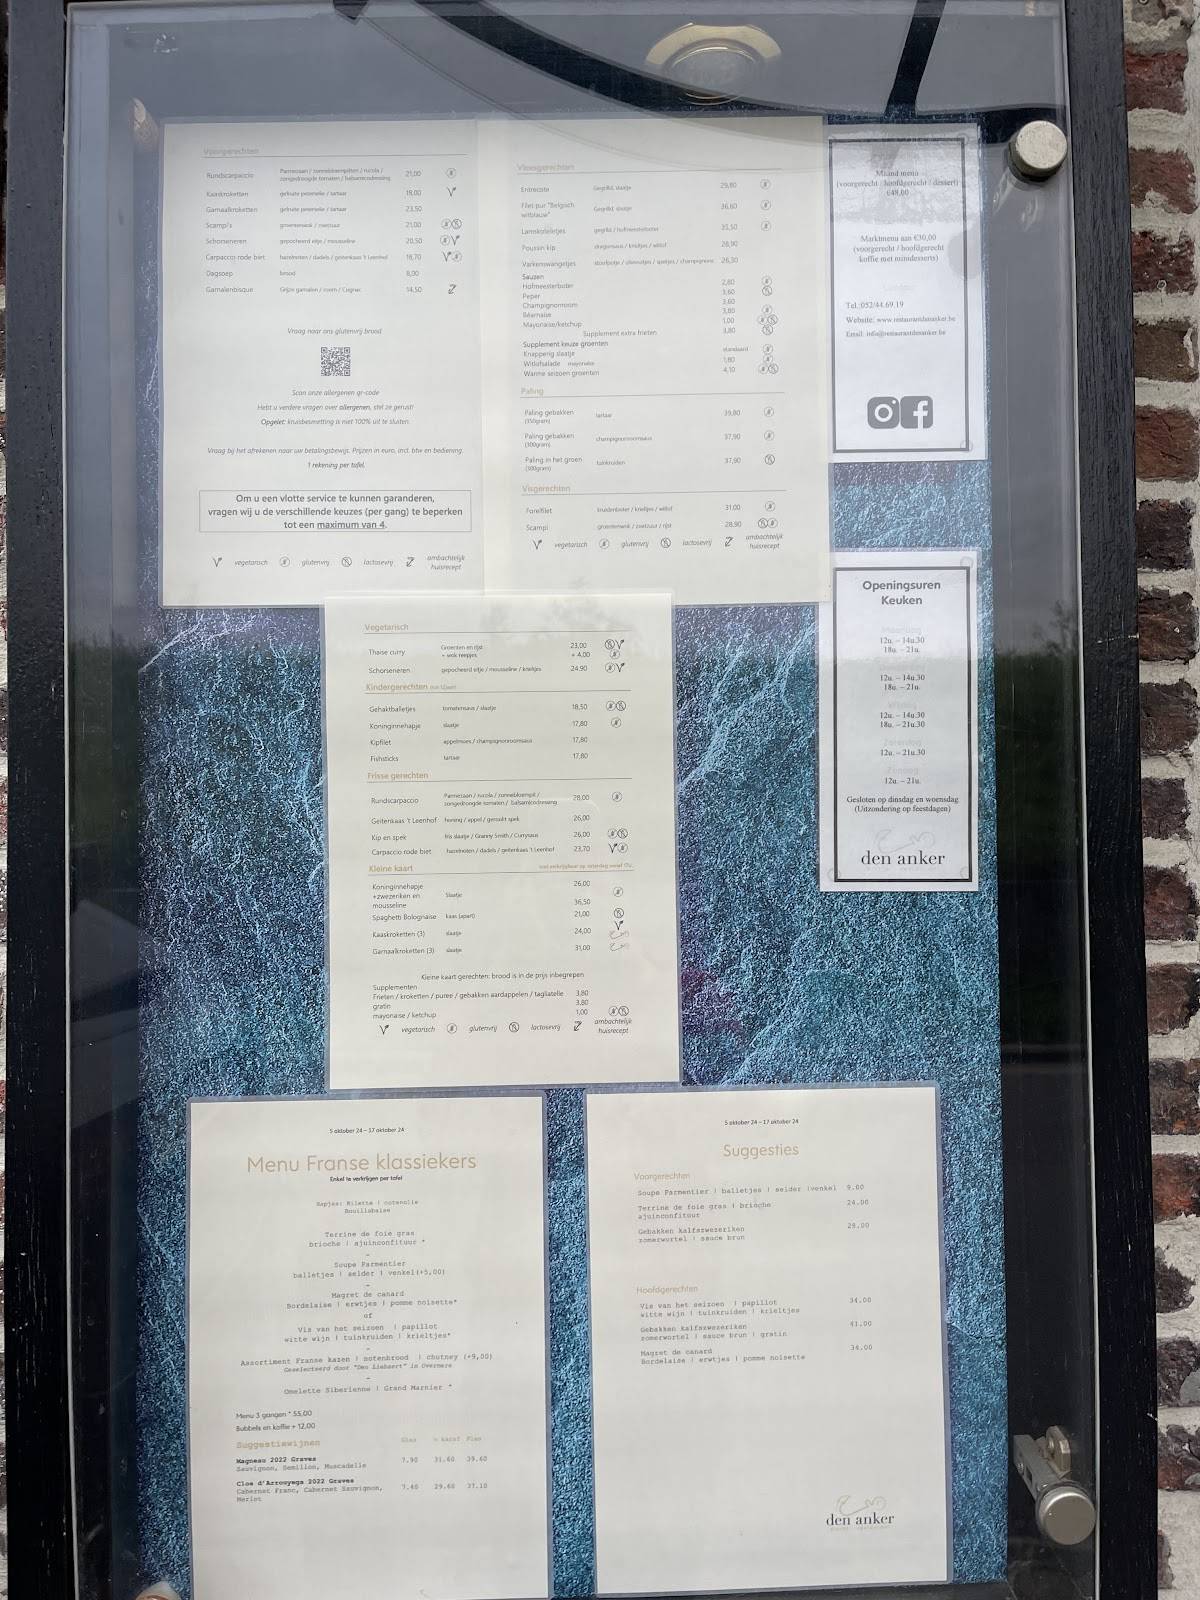 Voorgerechten
Rundscarpaccio Parmezaan / zonnebloempitten / rucola / 21,00
zongedroogde tomaten / balsamicodressing
Kaaskroketten gefruite peterselie / tartaar 19,00
Garnaalkroketten gefruite peterselie / tartaar 23,50
Scampi's groentenwok / zoetzuur 21,00
Schorseneren gepocheerd eitje / mousseline 20,50
Carpaccio rode biet hazelnoten / dadels / geitenkaas 't Leenhof 18,70
Dagsoep brood 8,00
Garnalenbisque Grijze garnalen / room / Cognac 14,50
Vraag naar ons glutenvrij brood
Scan onze allergenen qr-code
Hebt u verdere vragen over allergenen, stel ze gerust!
Opgelet: kruisbesmetting is niet 100% uit te sluiten.
Vraag bij het afrekenen naar uw betalingsbewijs. Prijzen in euro, incl. btw en bediening.
1 rekening per tafel.
Om u een vlotte service te kunnen garanderen,
vragen wij u de verschillende keuzes (per gang) te beperken
tot een maximum van 4.
vegetarisch glutenvrij lactosevrij ambachtelijk
huisrecept
Vleesgerechten
Entrecote Gegrild, slaatje 29,80
Filet pur "Belgisch
witblauw" Gegrild, slaatje 36,60
Lamskoteletjes gegrild / hofmeesterboter 35,50
Poussin kip dragonsaus / krieltjes / witlof 28,90
Varkenswangetjes stoofpotje / zilveruitjes / spekjes / champignons 28,30
Sauzen
Hofmeesterboter 2,80
Peper 3,60
Champignonroom 3,60
Béarnaise 3,80
Mayonaise/ketchup 1,00
Supplement extra frieten 3,80
Supplement keuze groenten
Knapperig slaatje standaard
Witlofsalade mayonaise 1,80
Warme seizoen groenten 4,10
Paling
Paling gebakken tartaar 39,80
(350gram)
Paling gebakken champignonroomsaus 37,90
(300gram)
Paling in het groen tuinkruiden 37,90
(300gram)
Visgerechten
Forelfilet kruidenboter / krieltjes / witlof 31,00
Scampi groentenwok / zoetzuur / rijst 28,90
vegetarisch glutenvrij lactosevrij ambachtelijk
huisrecept
Maand menu
(voorgerecht / hoofdgerecht / dessert)
€48,00
Marktmenu aan €30,00
(voorgerecht / hoofdgerecht
koffie met minidesserts)
Contact
Tel.:052/44.69.19
Website: www.restaurantdenanker.be
Email: info@restaurantdenanker.be
Openingsuren
Keuken
Maandag
12u. – 14u.30
18u. – 21u.
12u. – 14u.30
18u. – 21u.
Vrijdag
12u. – 14u.30
18u. – 21u.30
Zaterdag
12u. – 21u.30
Zondag
12u. – 21u.
Gesloten op dinsdag en woensdag
(Uitzondering op feestdagen)
den anker
Vegetarisch
Thaise curry Groenten en rijst 23,00
+ wok reepjes + 4,00
Schorseneren gepocheerd eitje / mousseline / krieltjes 24,90
Kindergerechten
Gehaktballetjes tomatensaus / slaatje 18,50
Koninginnehapje slaatje 17,80
Kipfilet appelmoes / champignonroomsaus 17,80
Fishsticks tartaar 17,80
Frisse gerechten
Rundscarpaccio Parmezaan / rucola / zonnebloempit / 28,00
zongedroogde tomaten / balsamicodressing
Geitenkaas 't Leenhof honing / appel / gerookt spek 26,00
Kip en spek fris slaatje / Granny Smith / Currysaus 26,00
Carpaccio rode biet hazelnoten / dadels / geitenkaas 't Leenhof 23,70
Kleine kaart
Koninginnehapje 26,00
+zwezeriken en Slaatje
mousseline 36,50
Spaghetti Bolognaise kaas (apart) 21,00
Kaaskroketten (3) slaatje 24,00
Garnaalkroketten (3) slaatje 31,00
Kleine kaart gerechten: brood is in de prijs inbegrepen
Supplementen
Frieten / kroketten / puree / gebakken aardappelen / tagliatelle 3,80
gratin 3,80
mayonaise / ketchup 1,00
vegetarisch glutenvrij lactosevrij ambachtelijk
huisrecept
5 oktober 24 – 17 oktober 24
Menu Franse klassiekers
Enkel te verkrijgen per tafel
Hapjes: Rilette | notenolie
Bouillabaise
Terrine de foie gras
brioche | ajuinconfituur *
-
Soupe Parmentier
balletjes | selder | venkel(+5,00)
-
Magret de canard
Bordelaise | erwtjes | pomme noisette*
of
Vis van het seizoen | papillot
witte wijn | tuinkruiden | krieltjes*
-
Assortiment Franse kazen | notenbrood | chutney (+9,00)
Geselecteerd door "Den Liebaert" in Overmere
-
Omelette Siberienne | Grand Marnier *
Menu 3 gangen * 55,00
Bubbels en koffie + 12,00
Suggestiewijnen Glas ½ karaf Fles
Magneau 2022 Graves 7.90 31.60 39.60
Sauvignon, Semillon, Muscadelle
Clos d'Arrouyega 2022 Graves
Cabernet Franc, Cabernet Sauvignon, 7.40 29.60 37.10
Merlot
5 oktober 24 – 17 oktober 24
Suggesties
Voorgerechten
Soupe Parmentier | balletjes | selder |venkel 9.00
Terrine de foie gras | brioche 24.00
ajuinconfituur
Gebakken kalfszwezeriken 28.00
zomerwortel | sauce brun
Hoofdgerechten
Vis van het seizoen | papillot 34.00
witte wijn | tuinkruiden | krieltjes
Gebakken kalfszwezeriken 41.00
zomerwortel | sauce brun | gratin
Magret de canard 34.00
Bordelaise | erwtjes | pomme noisette
den anker